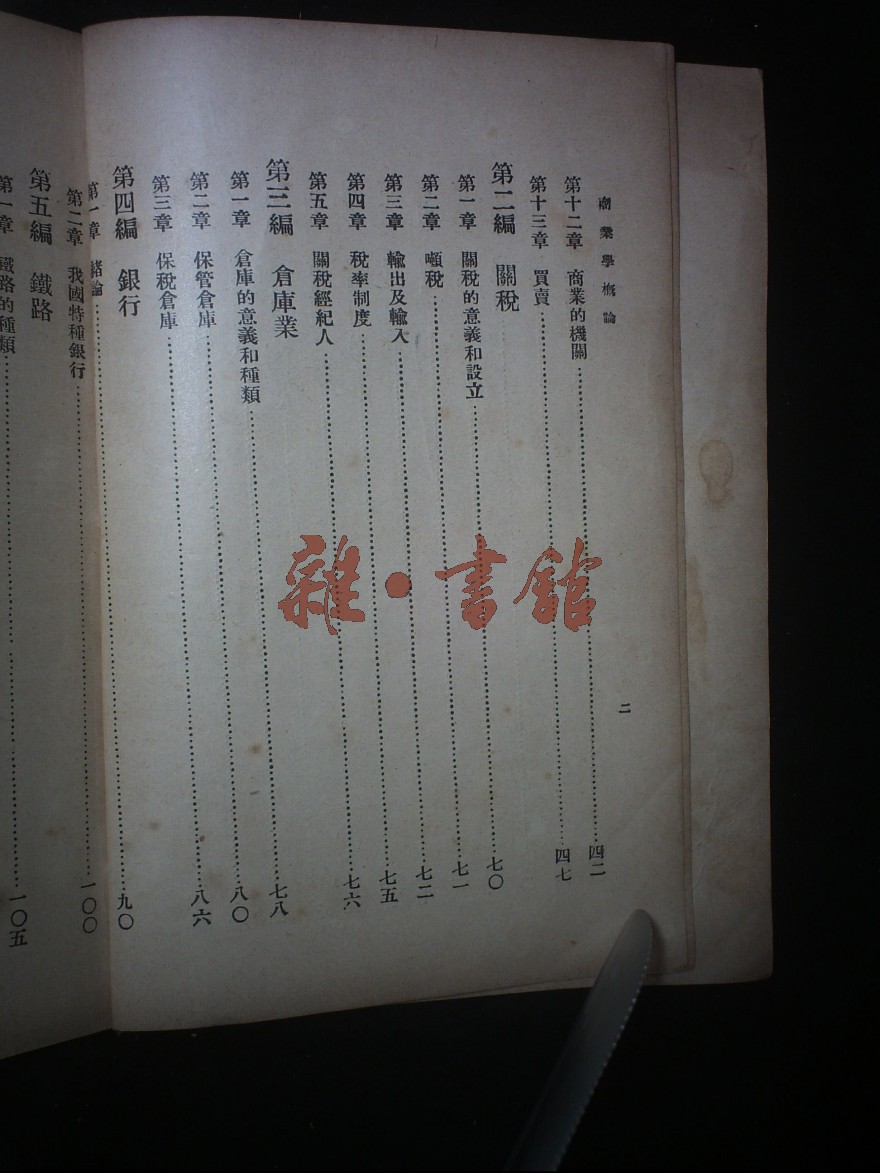 商業學概論
二
第十二章 商業的機關……四二
第十三章 買賣……四七
第二編 關稅
第一章 關稅的意義和設立……七〇
第二章 噸稅……七一
第三章 輸出及輸入……七二
第四章 稅率制度……七五
第五章 關稅經紀人……七六
第三編 倉庫業
第一章 倉庫的意義和種類……七八
第二章 保管倉庫……八〇
第三章 保稅倉庫……八六
第四編 銀行
第一章 緒論……九〇
第二章 我國特種銀行……一〇〇
第五編 鐵路
第一章 鐵路的種類……一〇五
雜·書館